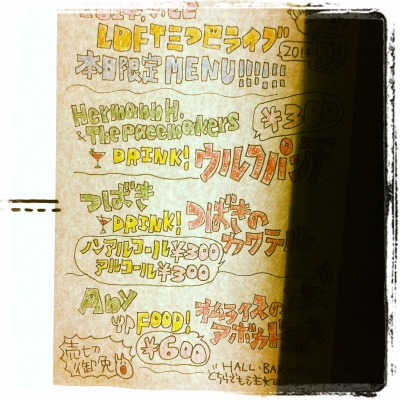 LOFTミつ巴ライブ
2014
本日限定 MENU!!!!!!
Hermann H.
& The Pacemakers
¥300
DRINK! ウルフパンチ
つばき
DRINK! つばきの
カクテル
ノンアルコール ¥300
アルコール ¥300
Any
FOOD! オムライスの
アボカド
¥600
売切
御免
HALL・BARカウンター
どちらでも注文